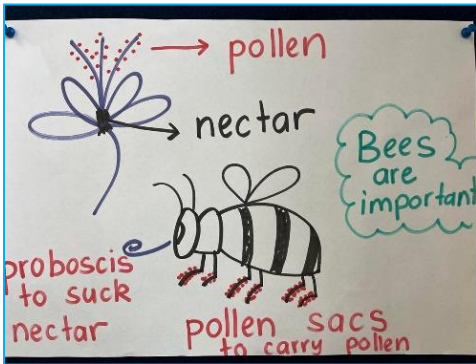 pollen
nectar
Bees
are
important
proboscis
to suck
nectar
pollen sacs
to carry pollen